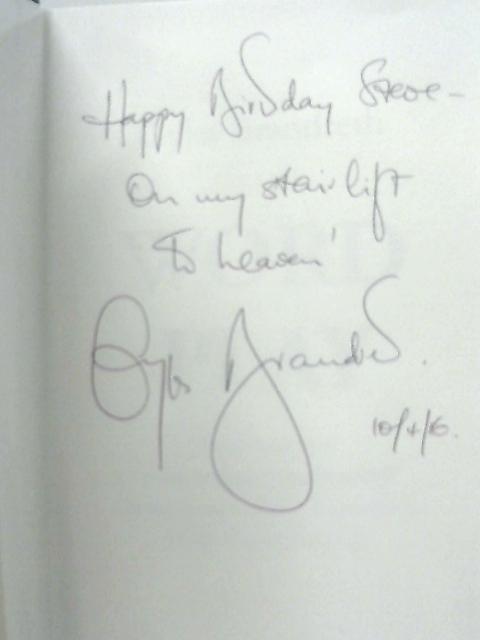 Happy Birthday Steve -
On my stairlift
to heaven'
10/4/16.